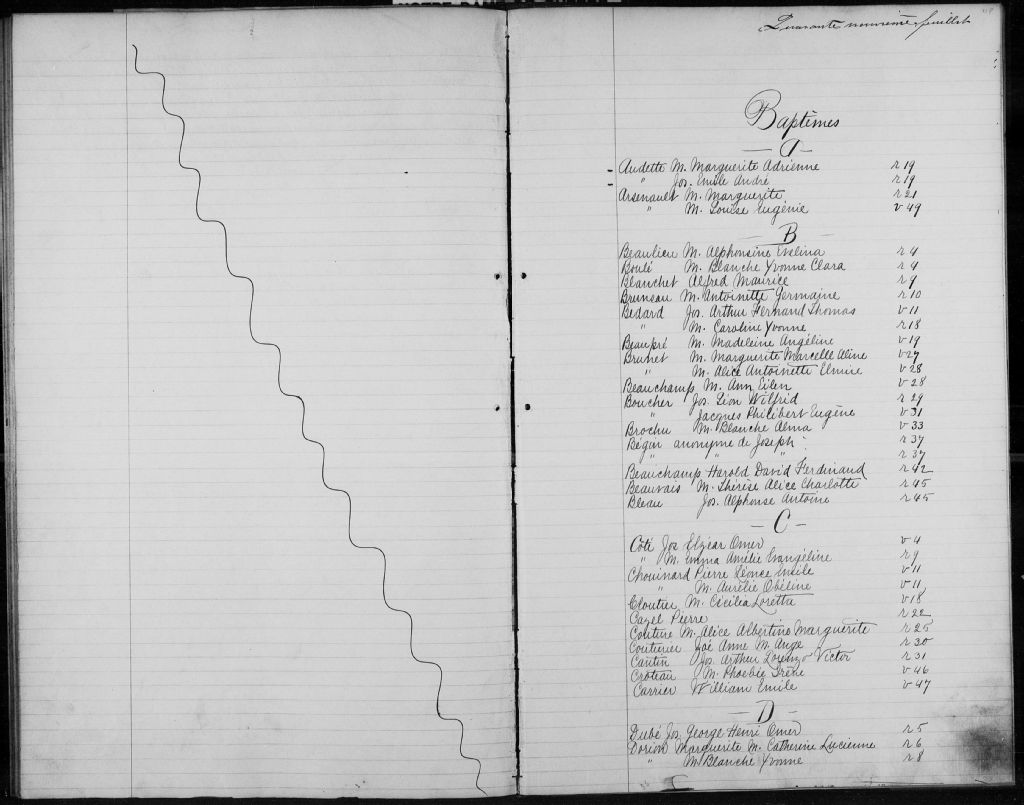 Quarante neuvième feuillet
Baptêmes
— A —
Audette M. Marguerite Adrienne r 19
" Jos. Emile André r 19
Arsenault M. Marguerite r 21
" M. Louise Eugénie v 49
— B —
Beaulieu M. Alphonsine Evelina r 4
Boulé M. Blanche Yvonne Clara r 4
Blanchet Alfred Maurice r 9
Bruneau M. Antoinette Germaine r 10
Bedard Jos. Arthur Fernand Thomas v 11
" M. Caroline Yvonne r 18
Beaupré M. Madeleine Angéline v 19
Brunet M. Marguerite Marcelle Aline v 27
" M. Alice Antoinette Elmire v 28
Beauchamp M. Ann Eilen v 28
Boucher Jos. Léon Wilfrid r 29
" Jacques Philibert Eugène v 31
Brochu M. Blanche Alma v 33
Bégin anonyme de Joseph r 37
" " " r 37
Beauchamp Harold David Ferdinand r 42
Beauvais M. Thérèse Alice Charlotte r 45
Bleau Jos. Alphonse Antoine r 45
— C —
Coté Jos Elzéar Omer v 4
" M. Emma Amélie Evangéline r 9
Chouinard Pierre Léonce Emile v 11
" M. Aurélie Obéline v 11
Cloutier M. Cécilia Loretta v 18
Cazel Pierre r 22
Couture M. Alice Albertine Marguerite r 25
Couturier Joé Anne M. Ange r 30
Cantin Jos. Arthur Lorenzo Victor r 31
Croteau M. Phoebie Irène v 46
Carrier William Emile v 47
— D —
Dubé Jos. George Henri Omer r 5
Dorion Marguerite M. Catherine Lucienne r 6
" M. Blanche Yvonne r 8